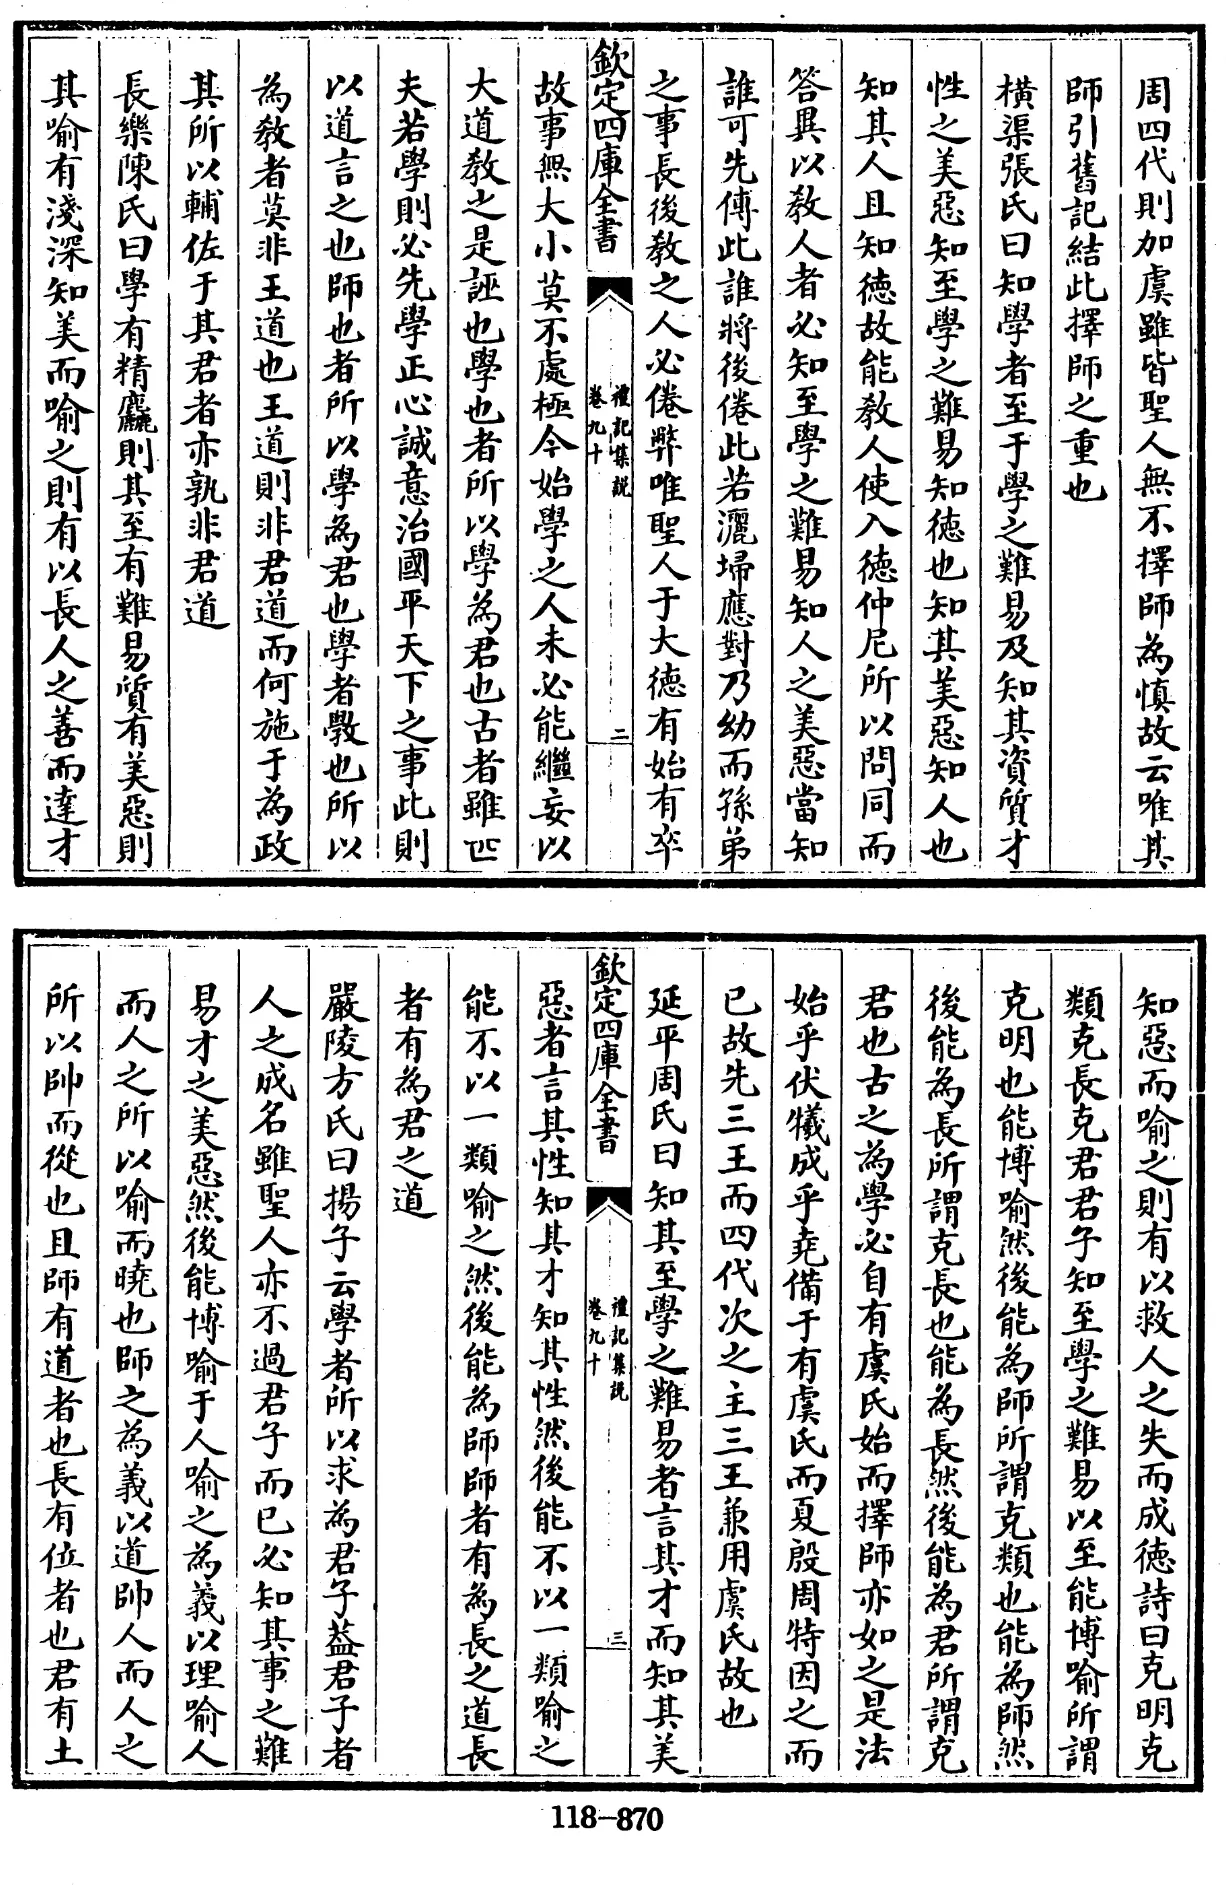 周四代則加虞雖皆聖人無不擇師為慎故云唯其
師引舊記結此擇師之重也
橫渠張氏曰知學者至于學之難易及知其資質才
性之美惡知至學之難易知德也知其美惡知人也
知其人且知徳故能教人使入徳仲尼所以問同而
答異以教人者必知至學之難易知人之美惡當知
誰可先傳此誰將後倦此若灑埽應對乃幼而孫弟
之事長後教之人必倦弊唯聖人于大徳有始有卒
欽定四庫全書
禮記集說
卷九十
二
故事無大小莫不處極今始學之人未必能繼妄以
大道教之是誣也學也者所以學為君也古者雖匹
夫若學則必先學正心誠意治國平天下之事此則
以道言之也師也者所以學為君也學者斆也所以
為教者莫非王道也王道則非君道而何施于為政
其所以輔佐于其君者亦孰非君道
長樂陳氏曰學有精麤則其至有難易質有美惡則
其喻有淺深知美而喻之則有以長人之善而達才
知惡而喻之則有以救人之失而成徳詩曰克明克
類克長克君君子知至學之難易以至能博喻所謂
克明也能博喻然後能為師所謂克類也能為師然
後能為長所謂克長也能為長然後能為君所謂克
君也古之為學必自有虞氏始而擇師亦如之是法
始乎伏犧成乎堯備于有虞氏而夏殷周特因之而
已故先三王而四代次之主三王兼用虞氏故也
延平周氏曰知其至學之難易者言其才而知其美
欽定四庫全書
禮記集說
卷九十
三
惡者言其性知其才知其性然後能不以一類喻之
能不以一類喻之然後能為師師者有為長之道長
者有為君之道
嚴陵方氏曰揚子云學者所以求為君子蓋君子者
人之成名雖聖人亦不過君子而已必知其事之難
易才之美惡然後能博喻于人喻之為義以理喻人
而人之所以喻而曉也師之為義以道帥人而人之
所以帥而從也且師有道者也長有位者也君有土
118-870